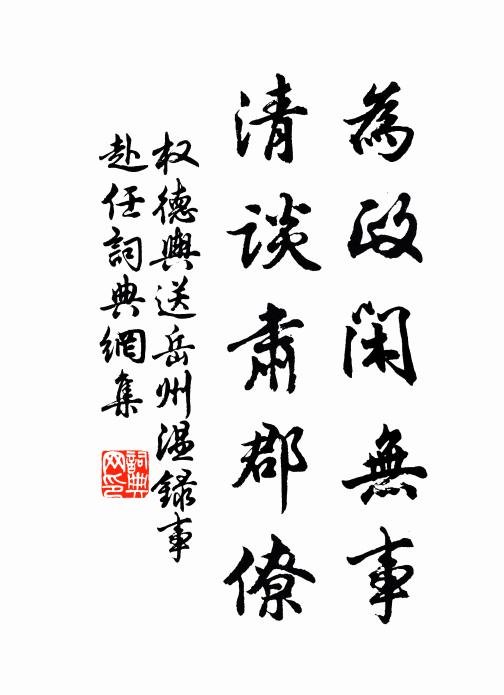 為政閑無事
清談肅郡僚
权德輿送岳州溫録事
赴任詞典網集
詞典网印